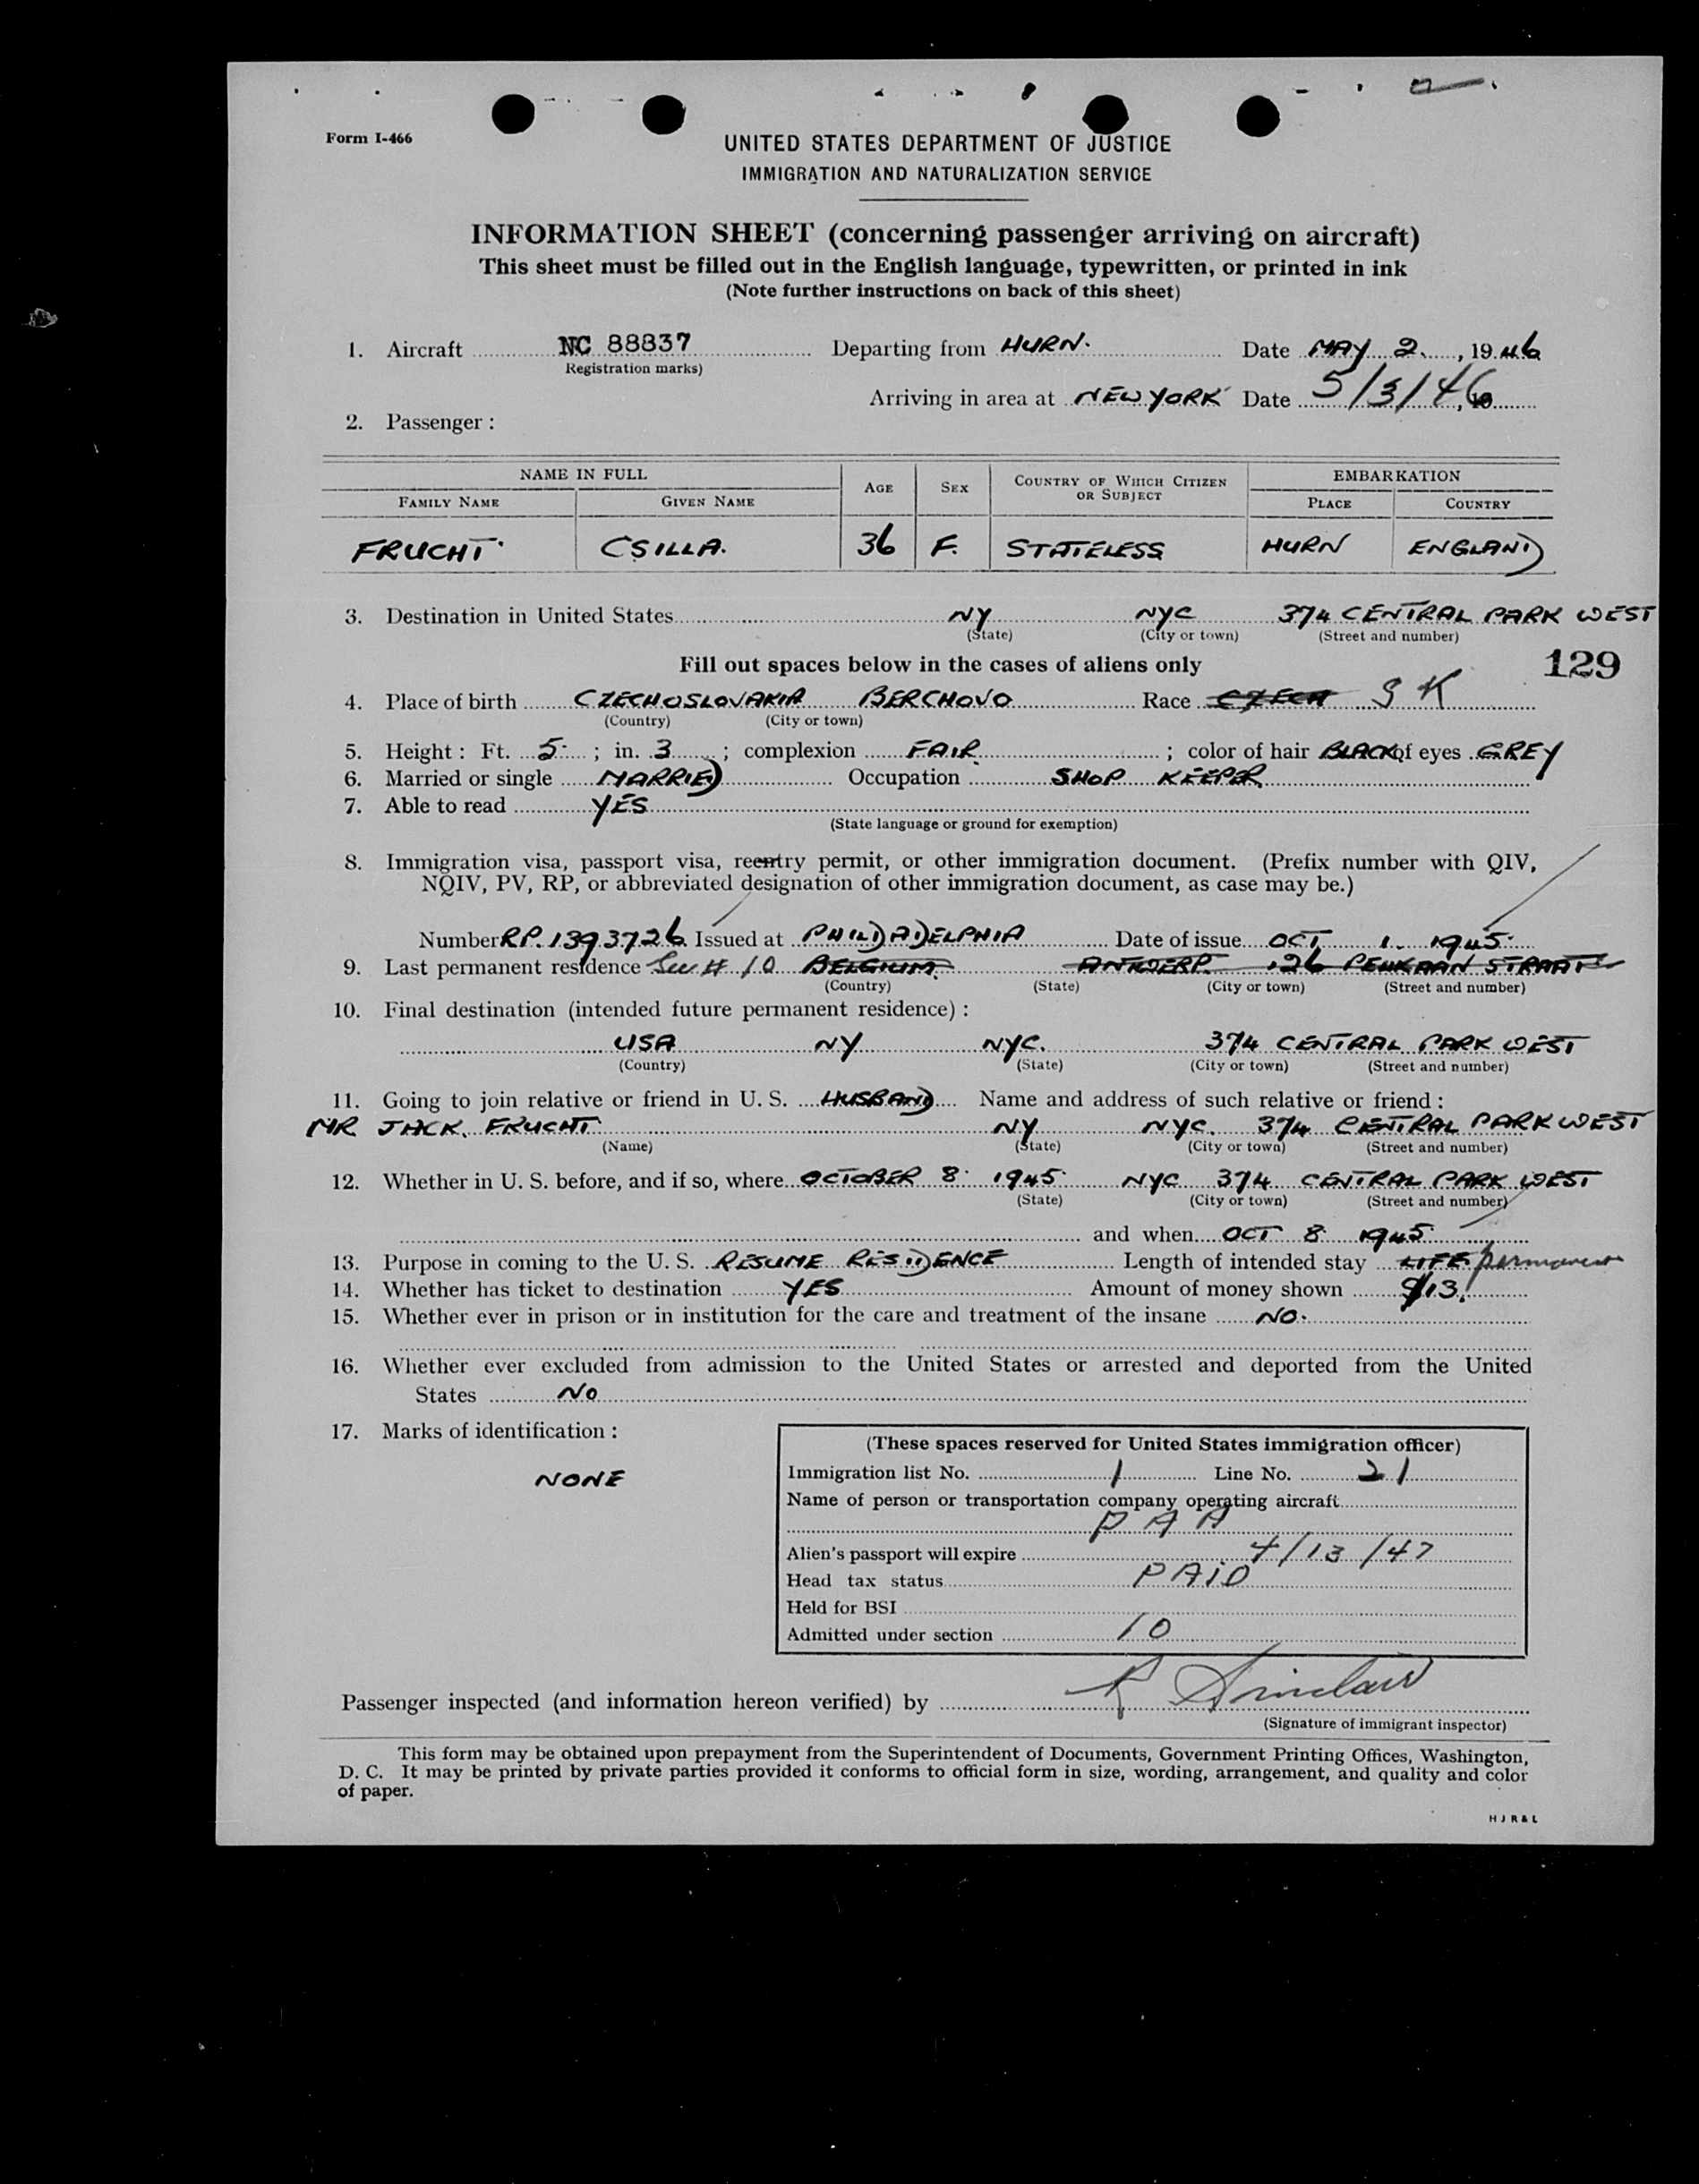 Form I-466
UNITED STATES DEPARTMENT OF JUSTICE
IMMIGRATION AND NATURALIZATION SERVICE
INFORMATION SHEET (concerning passenger arriving on aircraft)
This sheet must be filled out in the English language, typewritten, or printed in ink
(Note further instructions on back of this sheet)
1. Aircraft NC 88837 Departing from HURN. Date MAY 2, 1946
Registration marks)
Arriving in area at NEW YORK Date 5/3/46
2. Passenger:
NAME IN FULL AGE SEX COUNTRY OF WHICH CITIZEN OR SUBJECT EMBARKATION
FAMILY NAME GIVEN NAME PLACE COUNTRY
FRUCHT CSILLA. 36 F. STATELESS HURN ENGLAND
3. Destination in United States NY NYC 374 CENTRAL PARK WEST
(State) (City or town) (Street and number)
Fill out spaces below in the cases of aliens only
129
4. Place of birth CZECHOSLOVAKIA BERCHOVO Race CZECH
(Country) (City or town)
5. Height: Ft. 5 ; in. 3 ; complexion FAIR ; color of hair BLACK of eyes GREY
6. Married or single MARRIED Occupation SHOP KEEPER
7. Able to read YES
(State language or ground for exemption)
8. Immigration visa, passport visa, reentry permit, or other immigration document. (Prefix number with QIV,
NQIV, PV, RP, or abbreviated designation of other immigration document, as case may be.)
Number RP. 1393726 Issued at PHILADELPHIA Date of issue OCT 1. 1945
9. Last permanent residence See # 10 BELGIUM. ANTWERP. 26 STRAAT
(Country) (State) (City or town) (Street and number)
10. Final destination (intended future permanent residence):
USA NY NYC. 374 CENTRAL PARK WEST
(Country) (State) (City or town) (Street and number)
11. Going to join relative or friend in U. S. HUSBAND Name and address of such relative or friend:
MR JACK. FRUCHT NY NYC. 374 CENTRAL PARK WEST
(Name) (State) (City or town) (Street and number)
12. Whether in U. S. before, and if so, where OCTOBER 8 1945 NYC 374 CENTRAL PARK WEST
(State) (City or town) (Street and number)
and when OCT 8 1945
13. Purpose in coming to the U. S. RESUME RESIDENCE Length of intended stay LIFE permanent
14. Whether has ticket to destination YES Amount of money shown $13.
15. Whether ever in prison or in institution for the care and treatment of the insane NO.
16. Whether ever excluded from admission to the United States or arrested and deported from the United
States NO
17. Marks of identification:
NONE
(These spaces reserved for United States immigration officer)
Immigration list No. 1 Line No. 21
Name of person or transportation company operating aircraft
PAA
Alien's passport will expire 4/13/47
Head tax status PAID
Held for BSI
Admitted under section 10
Passenger inspected (and information hereon verified) by R Sinclair
(Signature of immigrant inspector)
This form may be obtained upon prepayment from the Superintendent of Documents, Government Printing Offices, Washington,
D. C. It may be printed by private parties provided it conforms to official form in size, wording, arrangement, and quality and color
of paper.
H J R & L